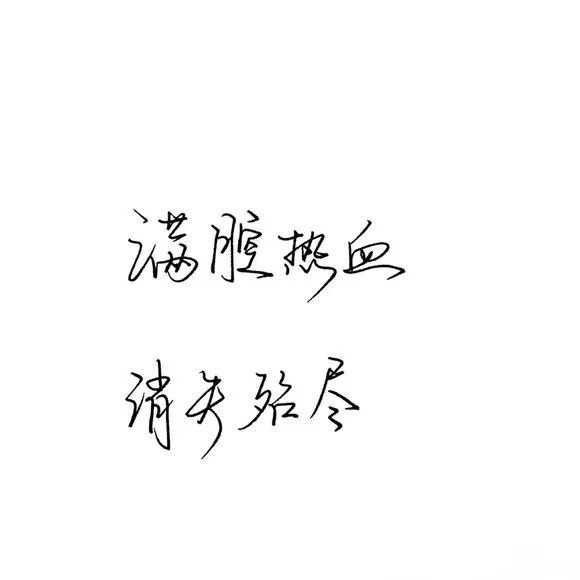 满腔热血
消失殆尽